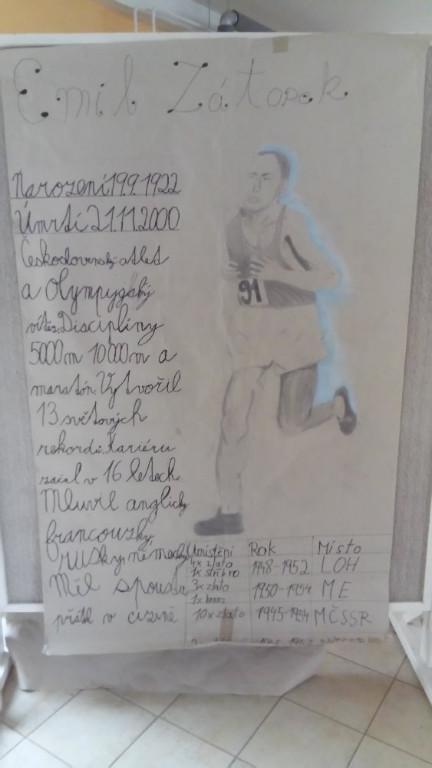 Emil Zátopek
Narození 19.9.1922
Úmrtí 21.11.2000
Československý atlet
a Olympyjský
vítěz. Disciplíny
5000m 10 000m a
maratón. Vytvořil
13 světových
rekordů. Kariéru
začal v 16 letech
Mluvil anglicky
francouzky,
rusky, německy
Měl spoustu
přátel v cizině
91
Umístění Rok Místo
4x zlato
1x stříbro 1948-1952 LOH
3x zlato
1x bronz 1950-1954 ME
10x zlato 1945-1954 MČSSR